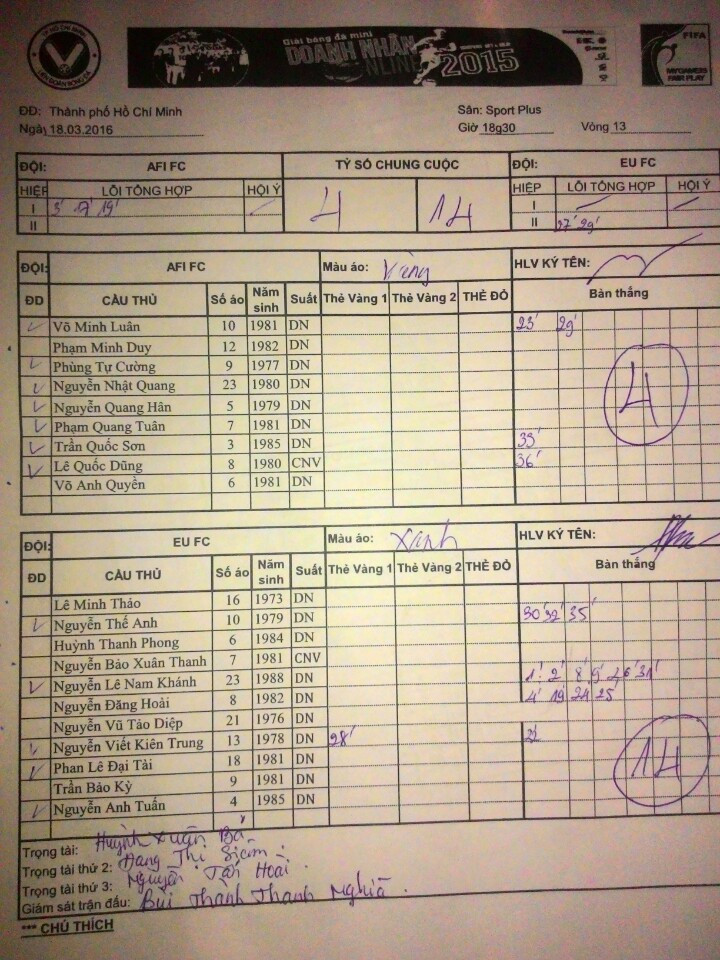 TP HỒ CHÍ MINH
LIÊN ĐOÀN BÓNG ĐÁ
Giải bóng đá mini
DOANH NHÂN
NLINE 2015
FIFA
MY GAME IS
FAIR PLAY
ĐĐ: Thành phố Hồ Chí Minh Sân: Sport Plus
Ngày 18.03.2016 Giờ 18g30 Vòng 13
ĐỘI: AFI FC TỶ SỐ CHUNG CUỘC ĐỘI: EU FC
HIỆP LỖI TỔNG HỢP HỘI Ý 4 14 HIỆP LỖI TỔNG HỢP HỘI Ý
I 3' 17' 19' I
II II 27' 29'
ĐỘI: AFI FC Màu áo: Vàng HLV KÝ TÊN:
ĐD CẦU THỦ Số áo Năm sinh Suất Thẻ Vàng 1 Thẻ Vàng 2 THẺ ĐỎ Bàn thắng
Võ Minh Luân 10 1981 DN 23' 29'
Phạm Minh Duy 12 1982 DN
Phùng Tự Cường 9 1977 DN
Nguyễn Nhật Quang 23 1980 DN
Nguyễn Quang Hân 5 1979 DN
Phạm Quang Tuân 7 1981 DN
Trần Quốc Sơn 3 1985 DN 33'
Lê Quốc Dũng 8 1980 CNV 36'
Võ Anh Quyền 6 1981 DN
4
ĐỘI: EU FC Màu áo: Xanh HLV KÝ TÊN:
ĐD CẦU THỦ Số áo Năm sinh Suất Thẻ Vàng 1 Thẻ Vàng 2 THẺ ĐỎ Bàn thắng
Lê Minh Thảo 16 1973 DN
Nguyễn Thế Anh 10 1979 DN 30' 32' 35'
Huỳnh Thanh Phong 6 1984 DN
Nguyễn Bảo Xuân Thanh 7 1981 CNV
Nguyễn Lê Nam Khánh 23 1988 DN 1' 2' 8' 9' 26' 31'
Nguyễn Đăng Hoài 8 1982 DN 4' 19' 24' 25'
Nguyễn Vũ Tảo Diệp 21 1976 DN
Nguyễn Viết Kiên Trung 13 1978 DN 28'
Phan Lê Đại Tài 18 1981 DN
Trần Bảo Kỳ 9 1981 DN
Nguyễn Anh Tuấn 4 1985 DN
14
Trọng tài: Huỳnh Xuân Ba
Trọng tài thứ 2: Đang Thị
Trọng tài thứ 3: Nguyễn Tấn Hoài
Giám sát trận đấu: Bùi Thành Thanh Nghĩa
*** CHÚ THÍCH